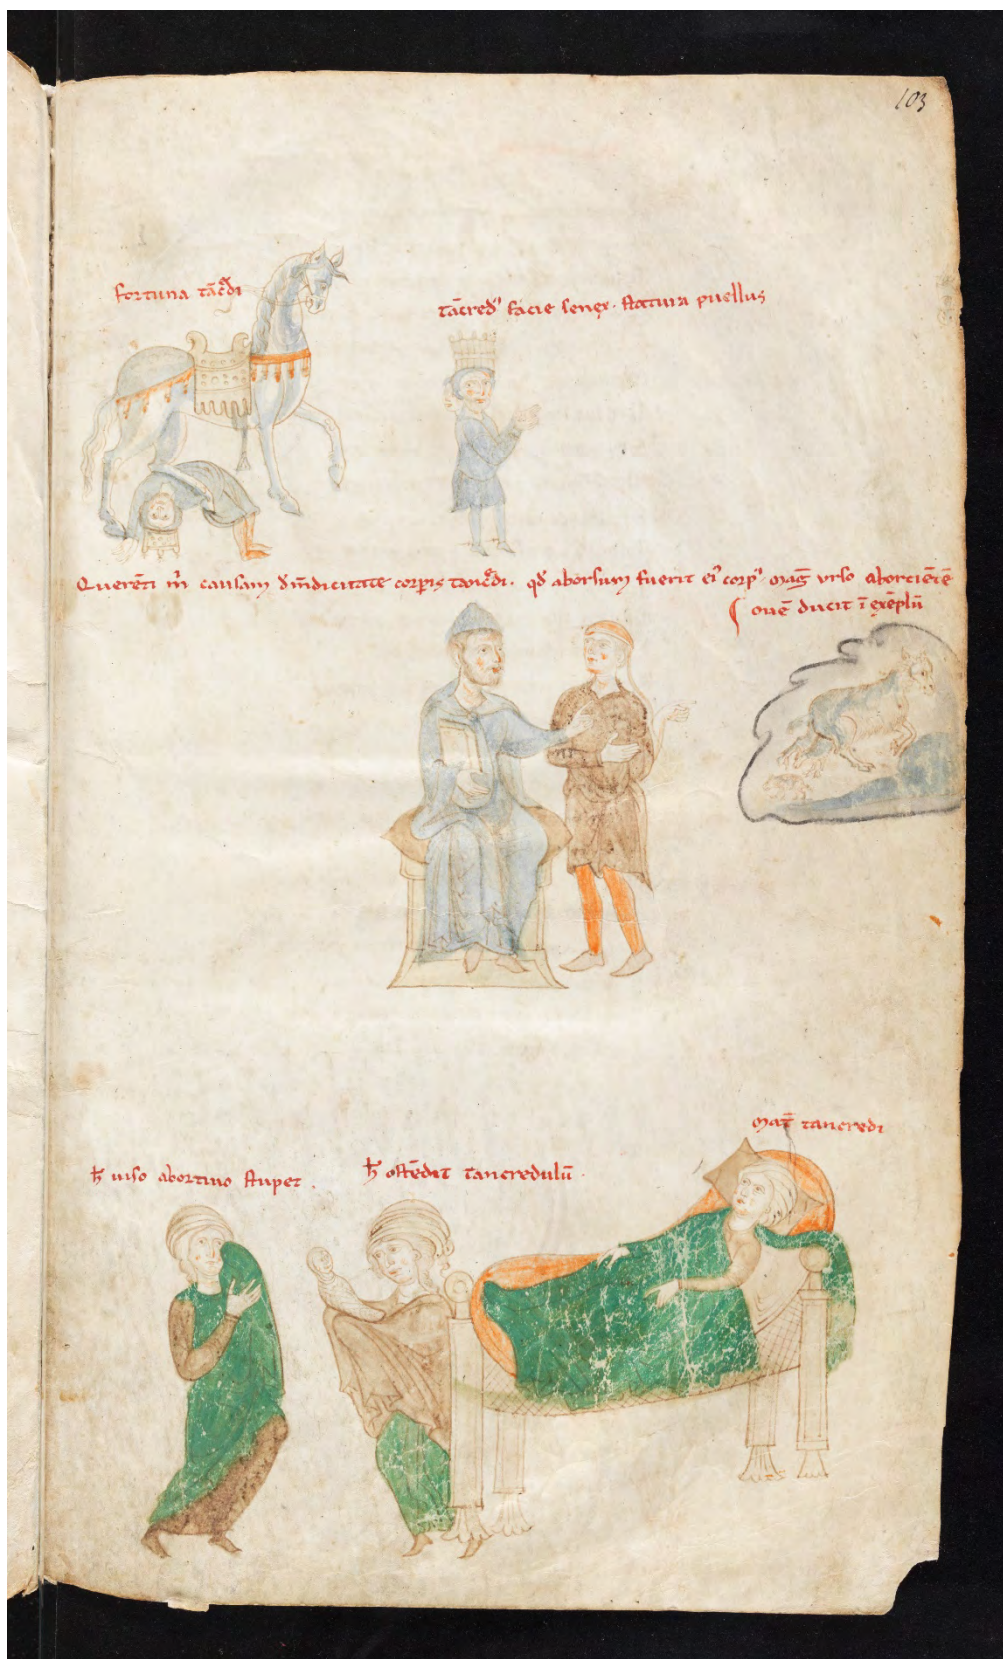 103
fortuna tāc͛di
tācred᾿ facie senex. statura puellus
Querēti m͛ causam d͛midicitate corꝑis tanc͛di. qd͛ aborsum fuerit ei᾿ corp᾿. mag̅ urso aborciētē
ouē ducit ī exēplū
mat̅ tancredi
h̅ uiso abortiuo stupet.
h̅ ostēdit tancredulū.